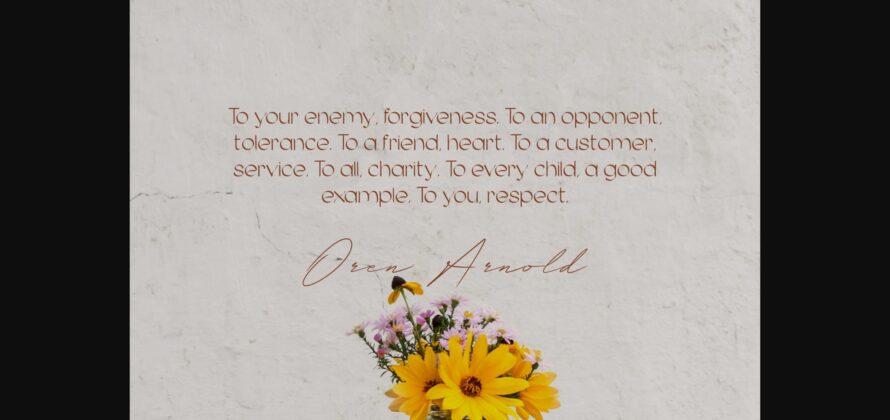 To your enemy, forgiveness. To an opponent,
tolerance. To a friend, heart. To a customer,
service. To all, charity. To every child, a good
example. To you, respect.
Oren Arnold